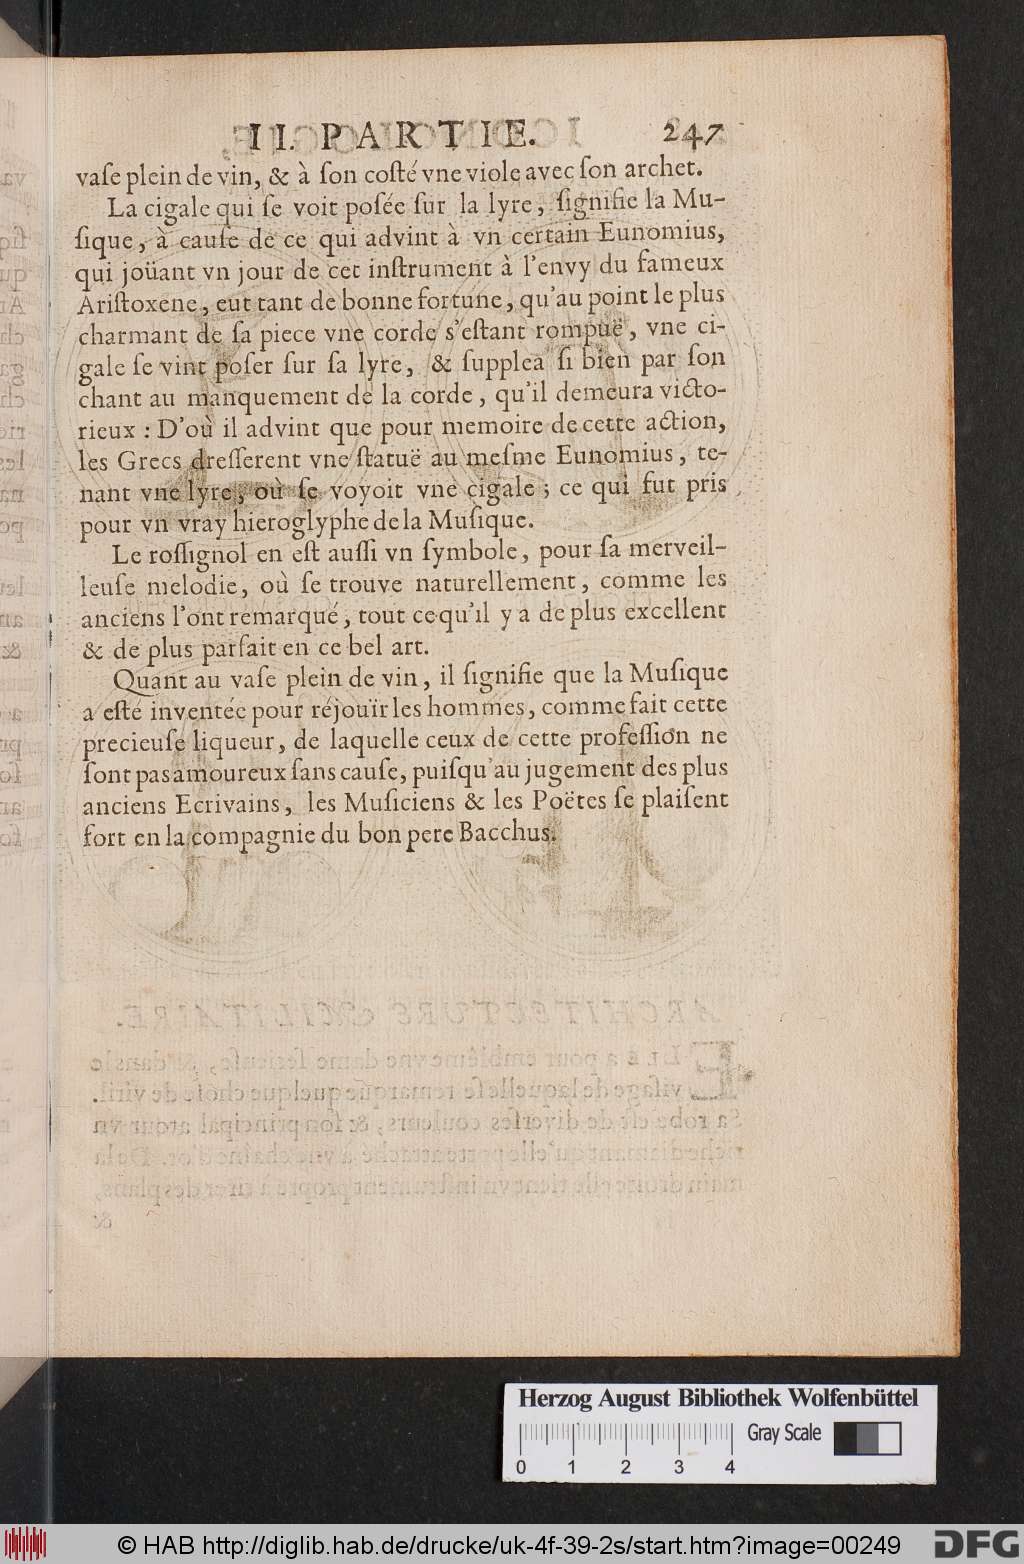 II. PARTIE. 247
vaſe plein de vin, & à ſon coſté vne viole avec ſon archet.
La cigale qui ſe voit poſée ſur la lyre, ſignifie la Mu-
ſique, à cauſe de ce qui advint à vn certain Eunomius,
qui joüant vn jour de cet inſtrument à l'envy du fameux
Ariſtoxene, eut tant de bonne fortune, qu'au point le plus
charmant de ſa piece vne corde s'eſtant rompuë, vne ci-
gale ſe vint poſer ſur ſa lyre, & ſupplea ſi bien par ſon
chant au manquement de la corde, qu'il demeura victo-
rieux : D'où il advint que pour memoire de cette action,
les Grecs dreſſerent vne ſtatuë au meſme Eunomius, te-
nant vne lyre, où ſe voyoit vne cigale ; ce qui fut pris
pour vn vray hieroglyphe de la Muſique.
Le roſſignol en eſt auſſi vn ſymbole, pour ſa merveil-
leuſe melodie, où ſe trouve naturellement, comme les
anciens l'ont remarqué, tout ce qu'il y a de plus excellent
& de plus parfait en ce bel art.
Quant au vaſe plein de vin, il ſignifie que la Muſique
a eſté inventée pour réjouïr les hommes, comme fait cette
precieuſe liqueur, de laquelle ceux de cette profeſſion ne
ſont pas amoureux ſans cauſe, puiſqu'au jugement des plus
anciens Ecrivains, les Muſiciens & les Poëtes ſe plaiſent
fort en la compagnie du bon pere Bacchus.
Herzog August Bibliothek Wolfenbüttel
Gray Scale
0 1 2 3 4
© HAB http://diglib.hab.de/drucke/uk-4f-39-2s/start.htm?image=00249
DFG